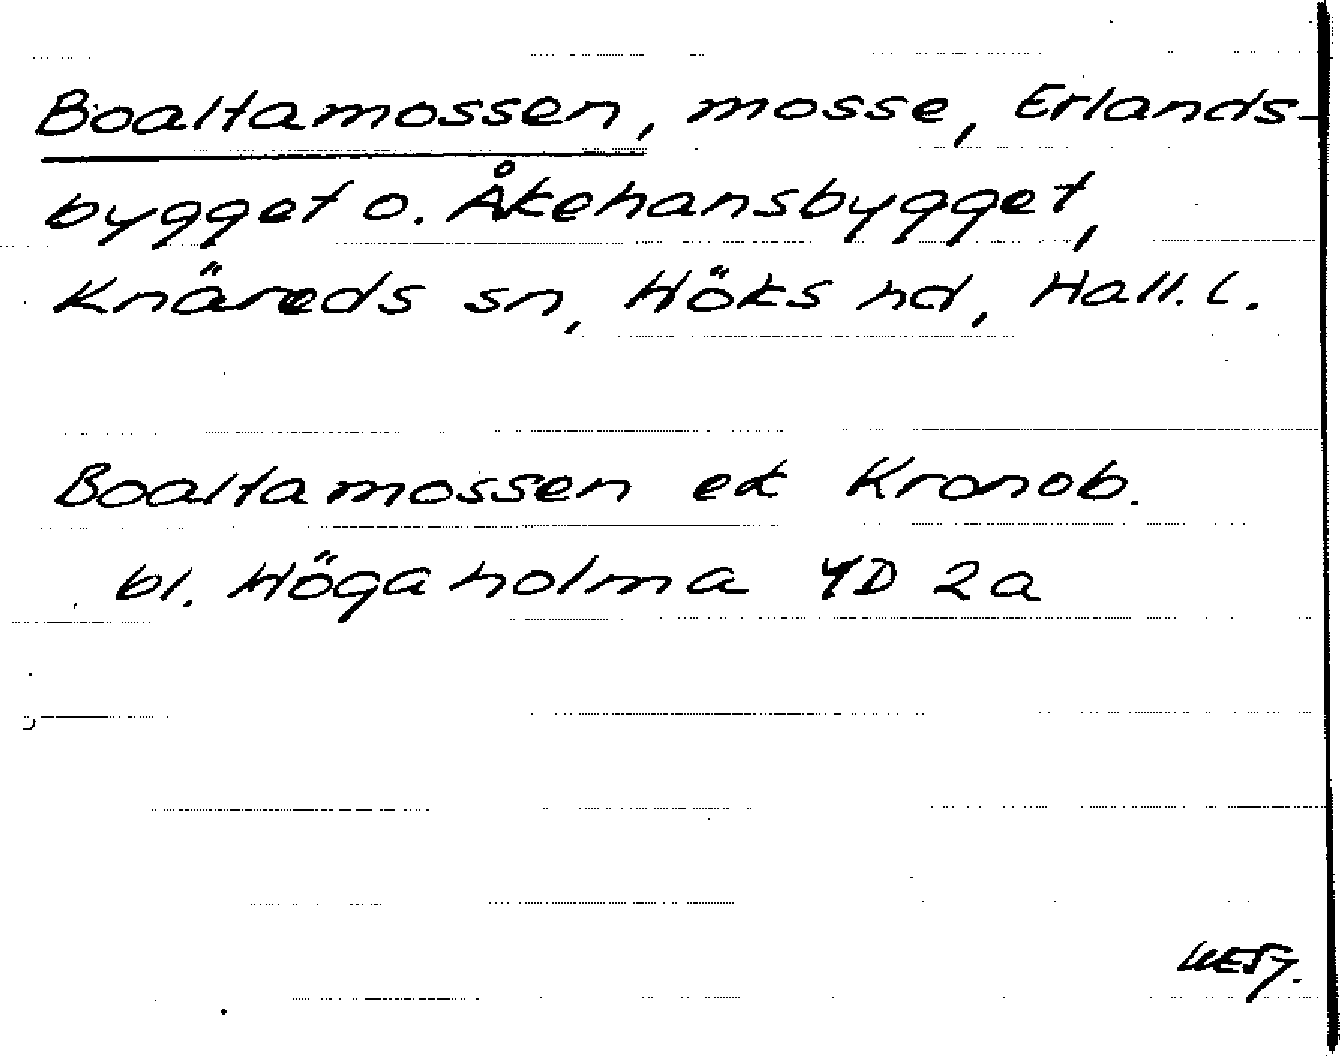 Boaltamossen, mosse, Erlands-
bygget o. Åkehansbygget,
Knäreds sn, Höks hd, Hall. l.
Boaltamossen ek Kronob.
bl. Högaholma 4D 2a